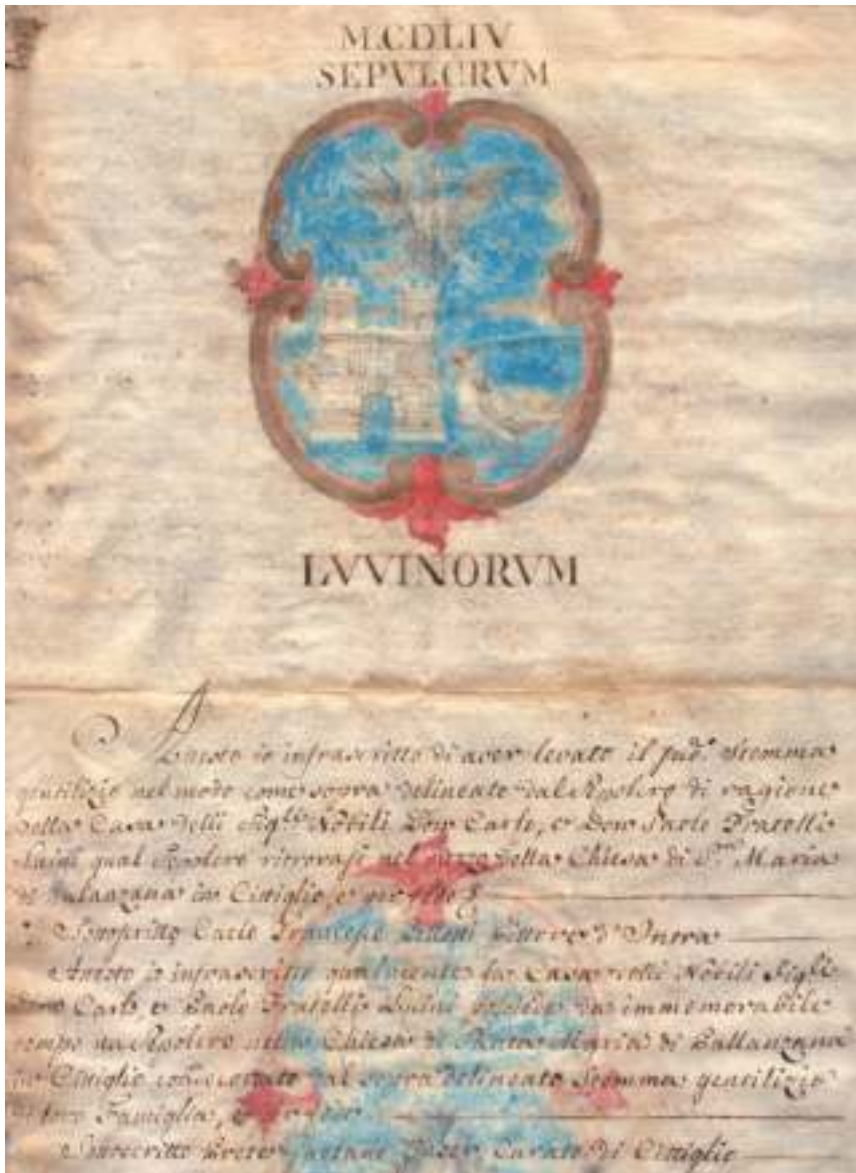 MCDLIV
SEPVLCRVM
LVVINORVM
Attesto io infrascritto di aver levato il sud.º Stemma
gentilizio nel modo come sopra delineato dal Sepolcro di ragione
della Casa delli Sig.ri Nobili Don Carlo, e Don Paolo Fratelli
Luini qual Sepolcro ritrovasi nel mezzo della Chiesa di S.ta Maria
di in Cittiglio, e per fede
Sottoscritto Carlo Pittore d'Intra
Attesto io infrascritto qualmente la Casa delli Nobili Sig.ri
Don Carlo e Paolo Fratelli Luini da immemorabile
tempo un Sepolcro nella Chiesa di Santa Maria di
in Cittiglio dal sopra delineato Stemma gentilizio
di loro Famiglia, e per fede
Sottoscritto Prete Gaetano Curato di Cittiglio